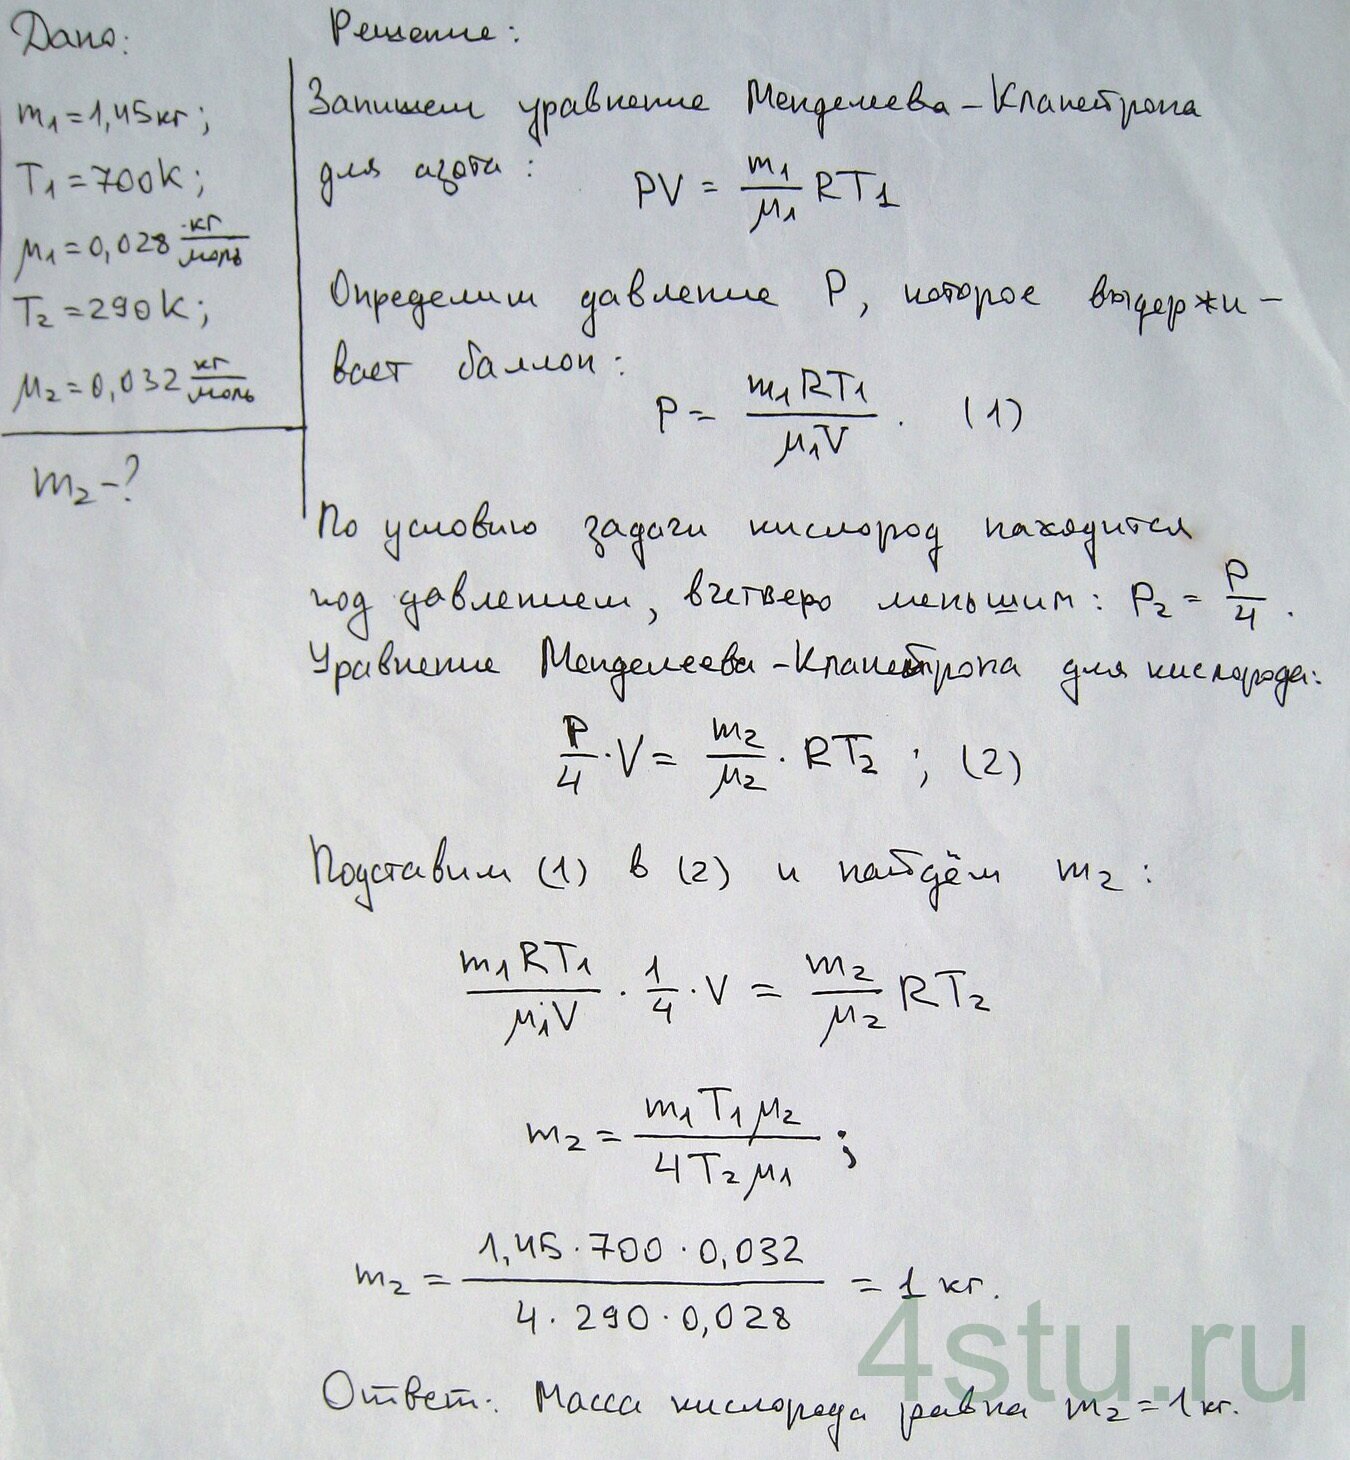 Дано:
m₁=1,45кг;
T₁=700К;
μ₁=0,028 кг/моль
T₂=290К;
μ₂=0,032 кг/моль
m₂-?
Решение:
Запишем уравнение Менделеева-Клапейрона
для азота: PV = m₁/μ₁ RT₁
Определим давление P, которое выдержи-
вает баллон:
P = m₁RT₁/μ₁V. (1)
По условию задачи кислород находится
под давлением, вчетверо меньшим: P₂ = P/4.
Уравнение Менделеева-Клапейрона для кислорода:
P/4 · V = m₂/μ₂ · RT₂; (2)
Подставим (1) в (2) и найдём m₂:
m₁RT₁/μ₁V · 1/4 · V = m₂/μ₂ RT₂
m₂ = m₁T₁μ₂/4T₂μ₁;
m₂ = 1,45·700·0,032/4·290·0,028 = 1 кг.
Ответ: Масса кислорода равна m₂=1кг.
4stu.ru